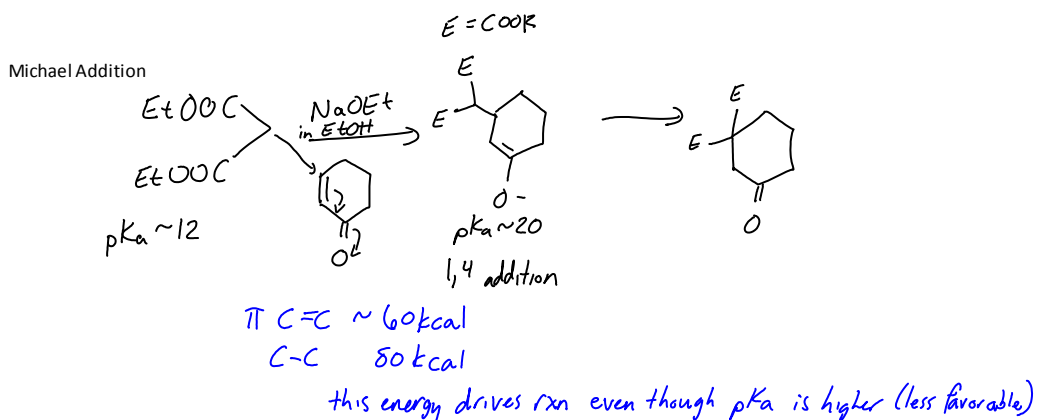 E = COOR
Michael Addition
EtOOC
EtOOC
NaOEt
in EtOH
O
pKa ~12
E
E
O -
pKa ~20
1,4 addition
E
E
O
π C=C ~ 60kcal
C-C 80 kcal
this energy drives rxn even though pKa is higher (less favorable)